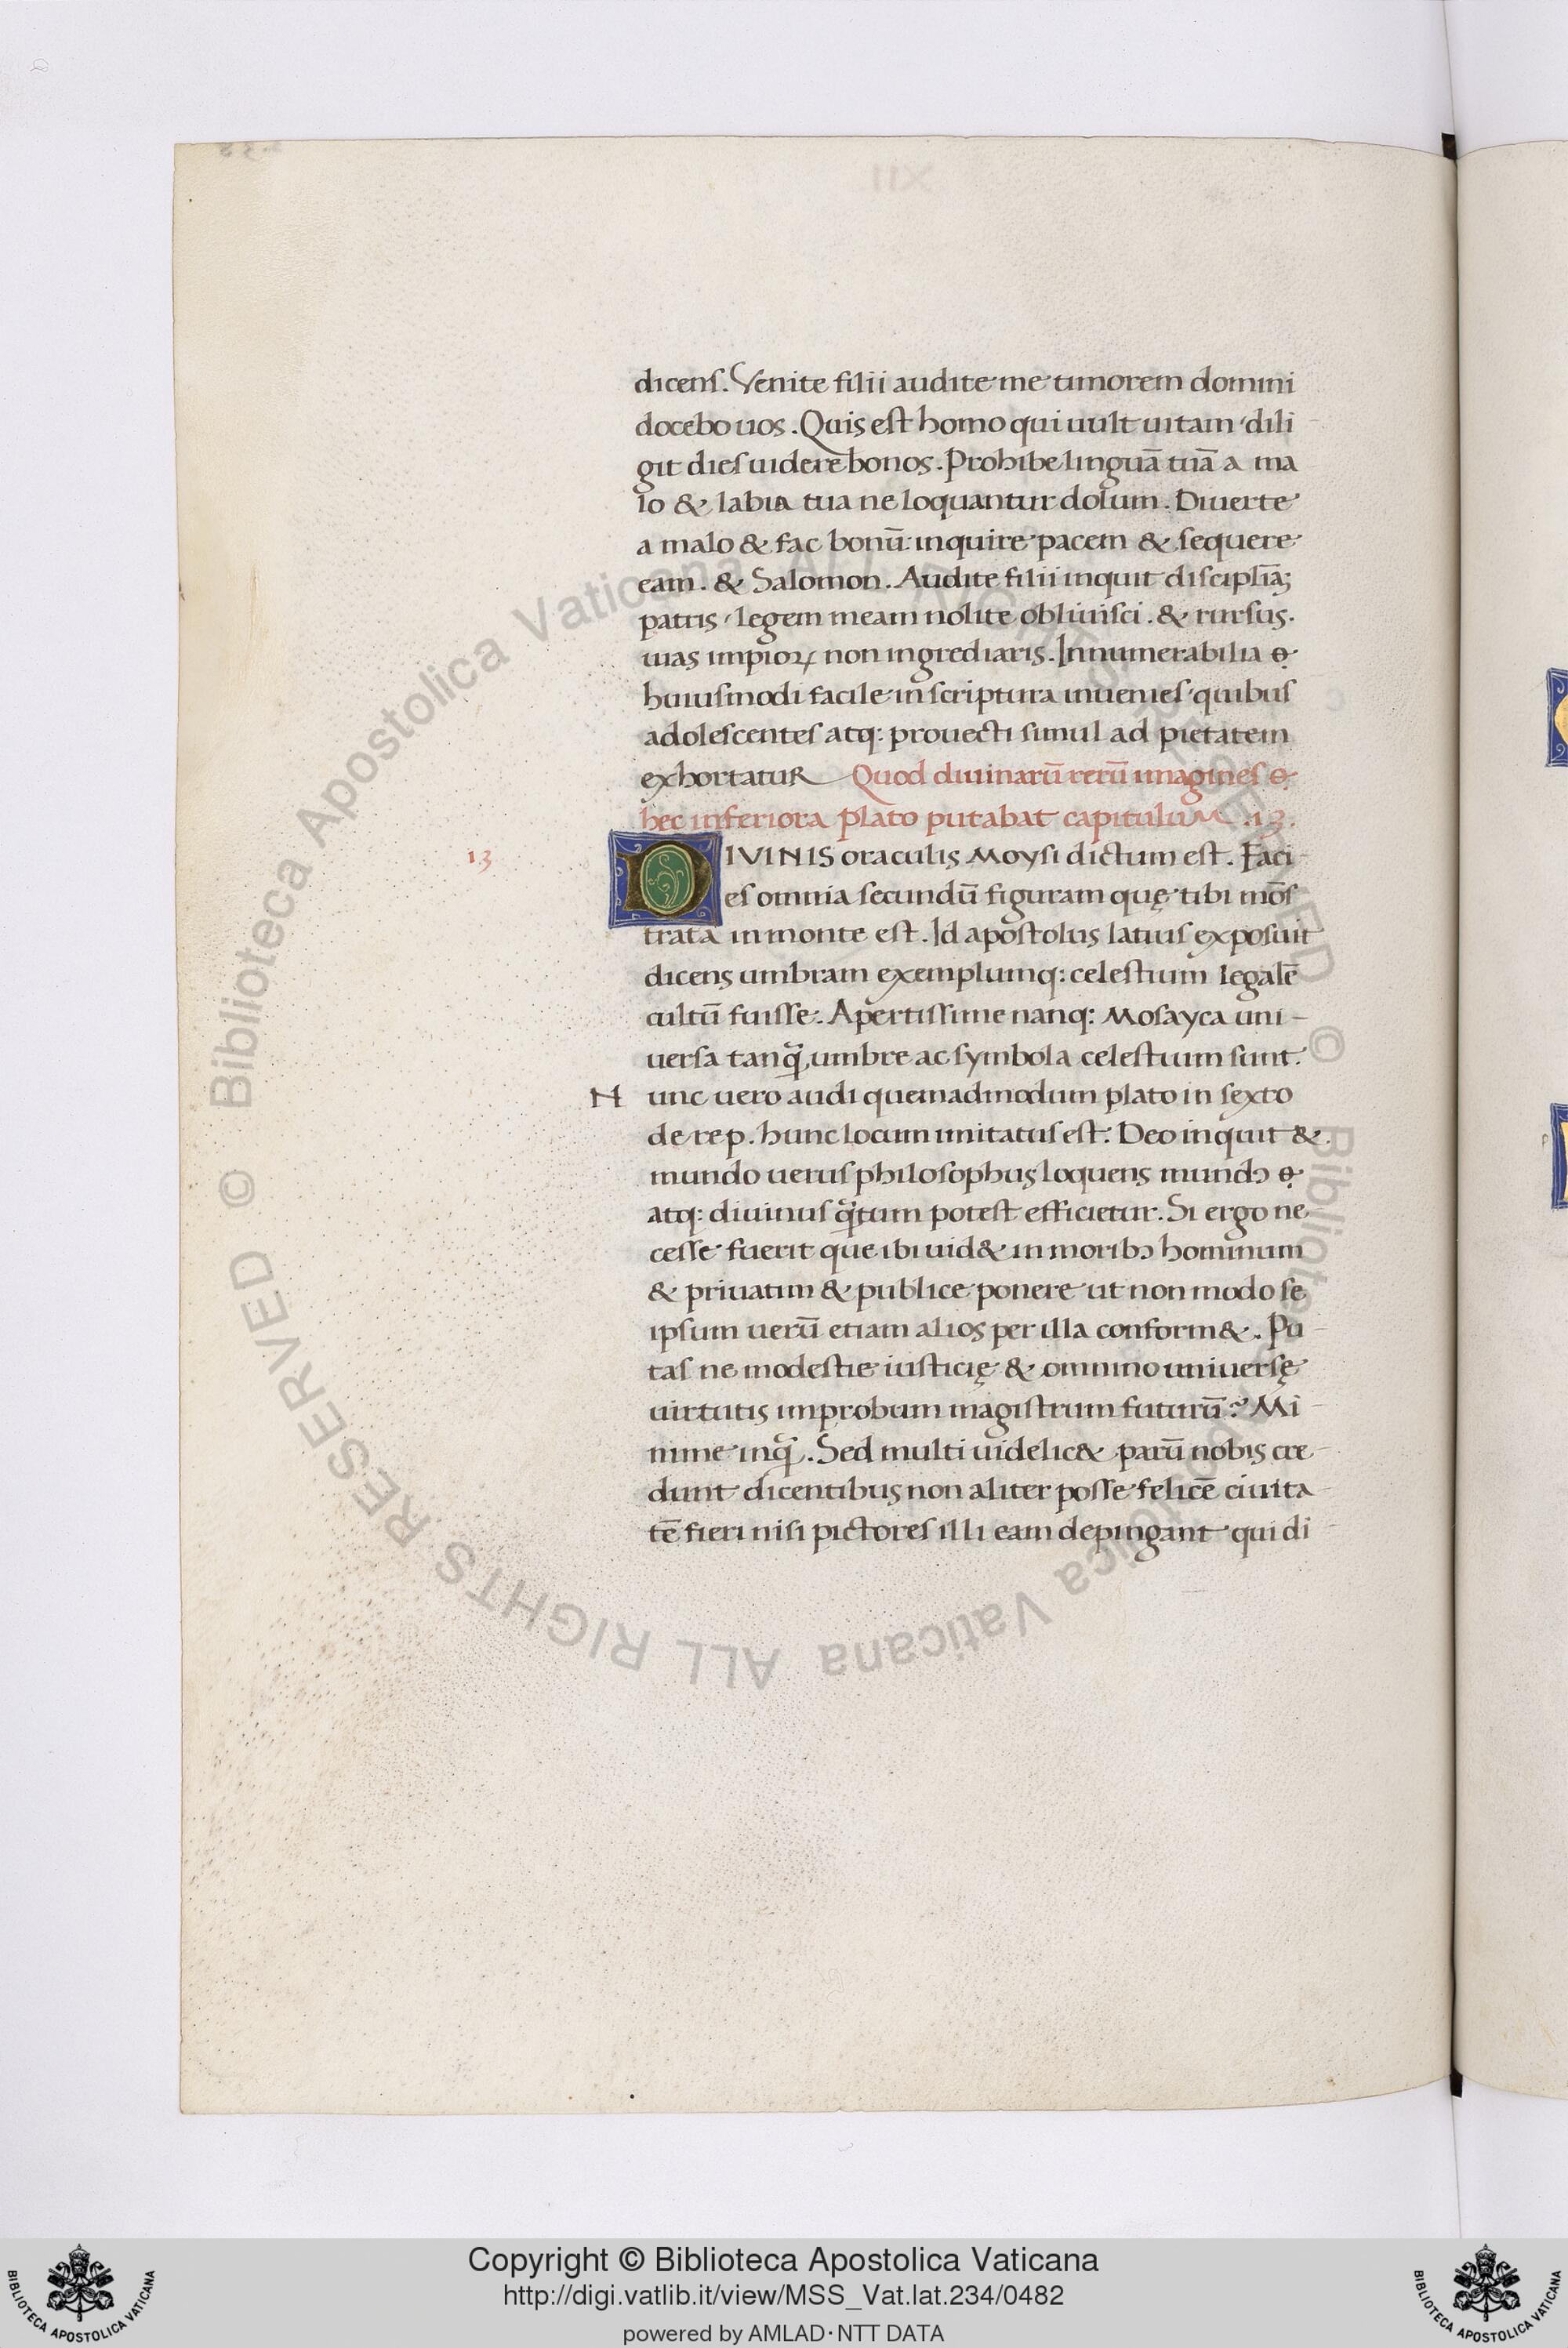 dicens. Venite filii audite me timorem domini
docebo uos. Quis est homo qui uult uitam dili
git dies uidere bonos. Prohibe linguā tuā a ma
lo & labia tua ne loquantur dolum. Diuerte
a malo & fac bonū inquire pacem & sequere
eam. & Salomon. Audite filii inquit disciplīā;
patris legem meam nolite obliuisci. & rursus.
uias impioꝝ non ingrediaris. Innumerabilia eͥ
huiusmodi facile in scriptura inuenies quibus
adolescentes atq: prouecti simul ad pietatem
exhortatur Quod diuinarū rerū imagines eͥ
hec inferiora plato putabat capitulum .13.
13
DIVINIS oraculis Moysi dictum est. Faci
es omnia secundū figuram quę tibi mōs
trata in monte est. Id apostolus latius exposuit
dicens umbram exemplumq: celestium legalē
cultū fuisse. Apertissime nanq: Mosayca uni-
uersa tanq̃ umbre ac symbola celestium sunt.
Nunc uero audi quemadmodum plato in sexto
de rep. hunc locum imitatus est. Deo inquit &
mundo uerus philosophus loquens mundꝰ eͥ
atq: diuinus q̃tum potest efficietur. Si ergo ne
cesse fuerit que ibi uid& in moribꝰ hominum
& priuatim & publice ponere ut non modo se
ipsum uerū etiam alios per illa conform&. Pu
tas ne modestie iusticię & omnino uniuersę
uirtutis improbum magistrum futurū? Mi
nime inq̃. Sed multi uidelic& parū nobis cre
dunt dicentibus non aliter posse felicē ciuita
tē fieri nisi pictores illi eam depingant qui di
© Biblioteca Apostolica Vaticana ALL RIGHTS RESERVED © Biblioteca Apostolica Vaticana ALL RIGHTS RESERVED
Copyright © Biblioteca Apostolica Vaticana
http://digi.vatlib.it/view/MSS_Vat.lat.234/0482
powered by AMLAD·NTT DATA
BIBLIOTECA APOSTOLICA VATICANA
BIBLIOTECA APOSTOLICA VATICANA